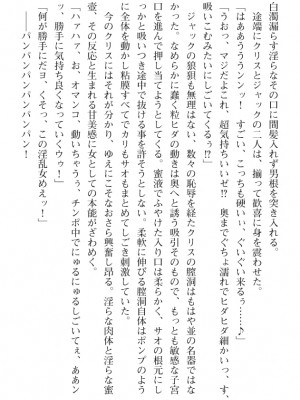 白濁漏らす淫らなその口に間髪入れず男根を突き入れる。
途端にクリスとジャックの二人は、揃って歓喜に身を震わせた。
「はああううンンッ！　すごい、こっちも硬いぃ、ぐいぐい来るぅ……♪」
「うおっ、マジだよこれ、超気持ちいいゼ!?　奥までぐちょ濡れでヒダヒダ細かいっす、
吸いこむみたいにしごいてくるぅ!?」
ジャックの狼狽も無理はない。数々の恥辱を経たクリスの膣洞はもはや並の名器ではな
かった。なめらかに蠢く粒ヒダの動きは奥へと誘う吸引そのもので、もっとも敏感な子宮
口に進んで押し当てようとしてくる。蜜液でふやけた入り口は柔らかく、サオの根元にし
っかと吸いつき途中で抜ける事を許そうとしない。柔軟に伸びる膣洞自体はポンプのよう
に全体を動かし粘膜すべてでカリもサオもまとめてしごき刺激していた。
今のクリスにはそれが分かり、ゆえにこそなおさら興奮し昂る。淫らな肉体と淫らな蜜
壺、その反応と生まれる甘美感に女としての本能がざわめく。
「ハァハァ、お、オマンコ、動いちゃうぅ、チンポ中でにゅるにゅるしごいてぇ、ああン
ッ、勝手に気持ち良くなっていくゥゥ！」
「何が勝手にだヨ、くそっ、この淫乱女めぇッ！」
――パンパンパンパンパンパン！